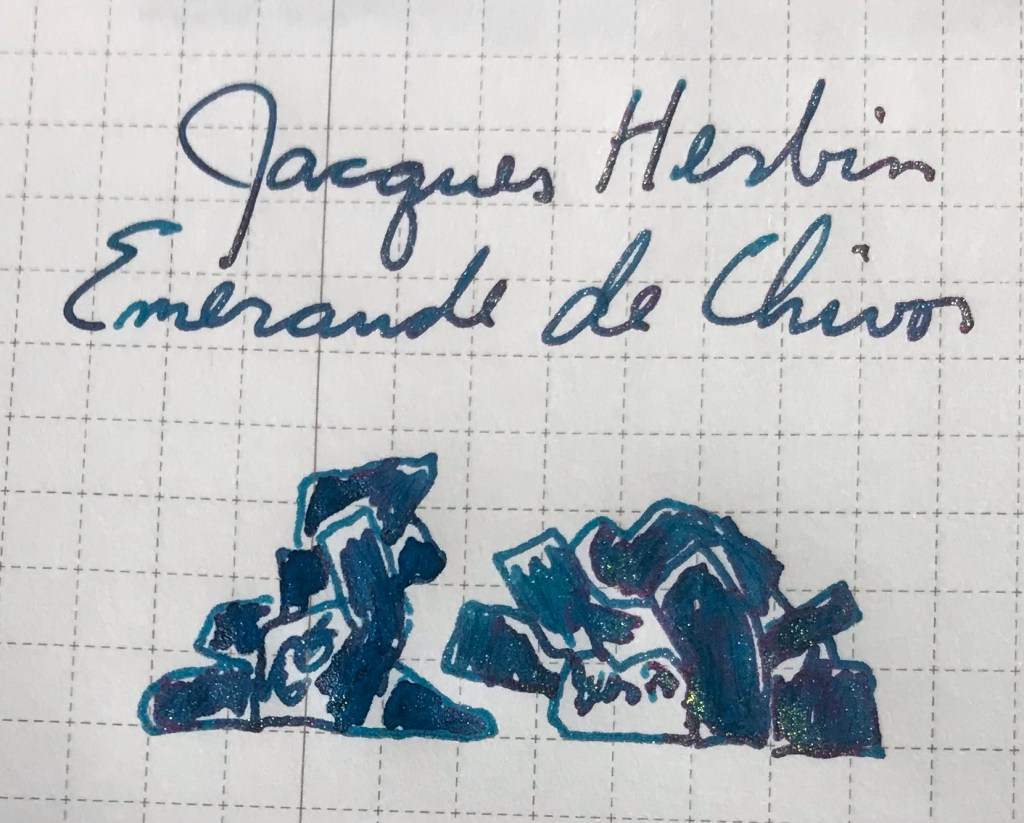 Jacques Herbin
Emeraude de Chivor